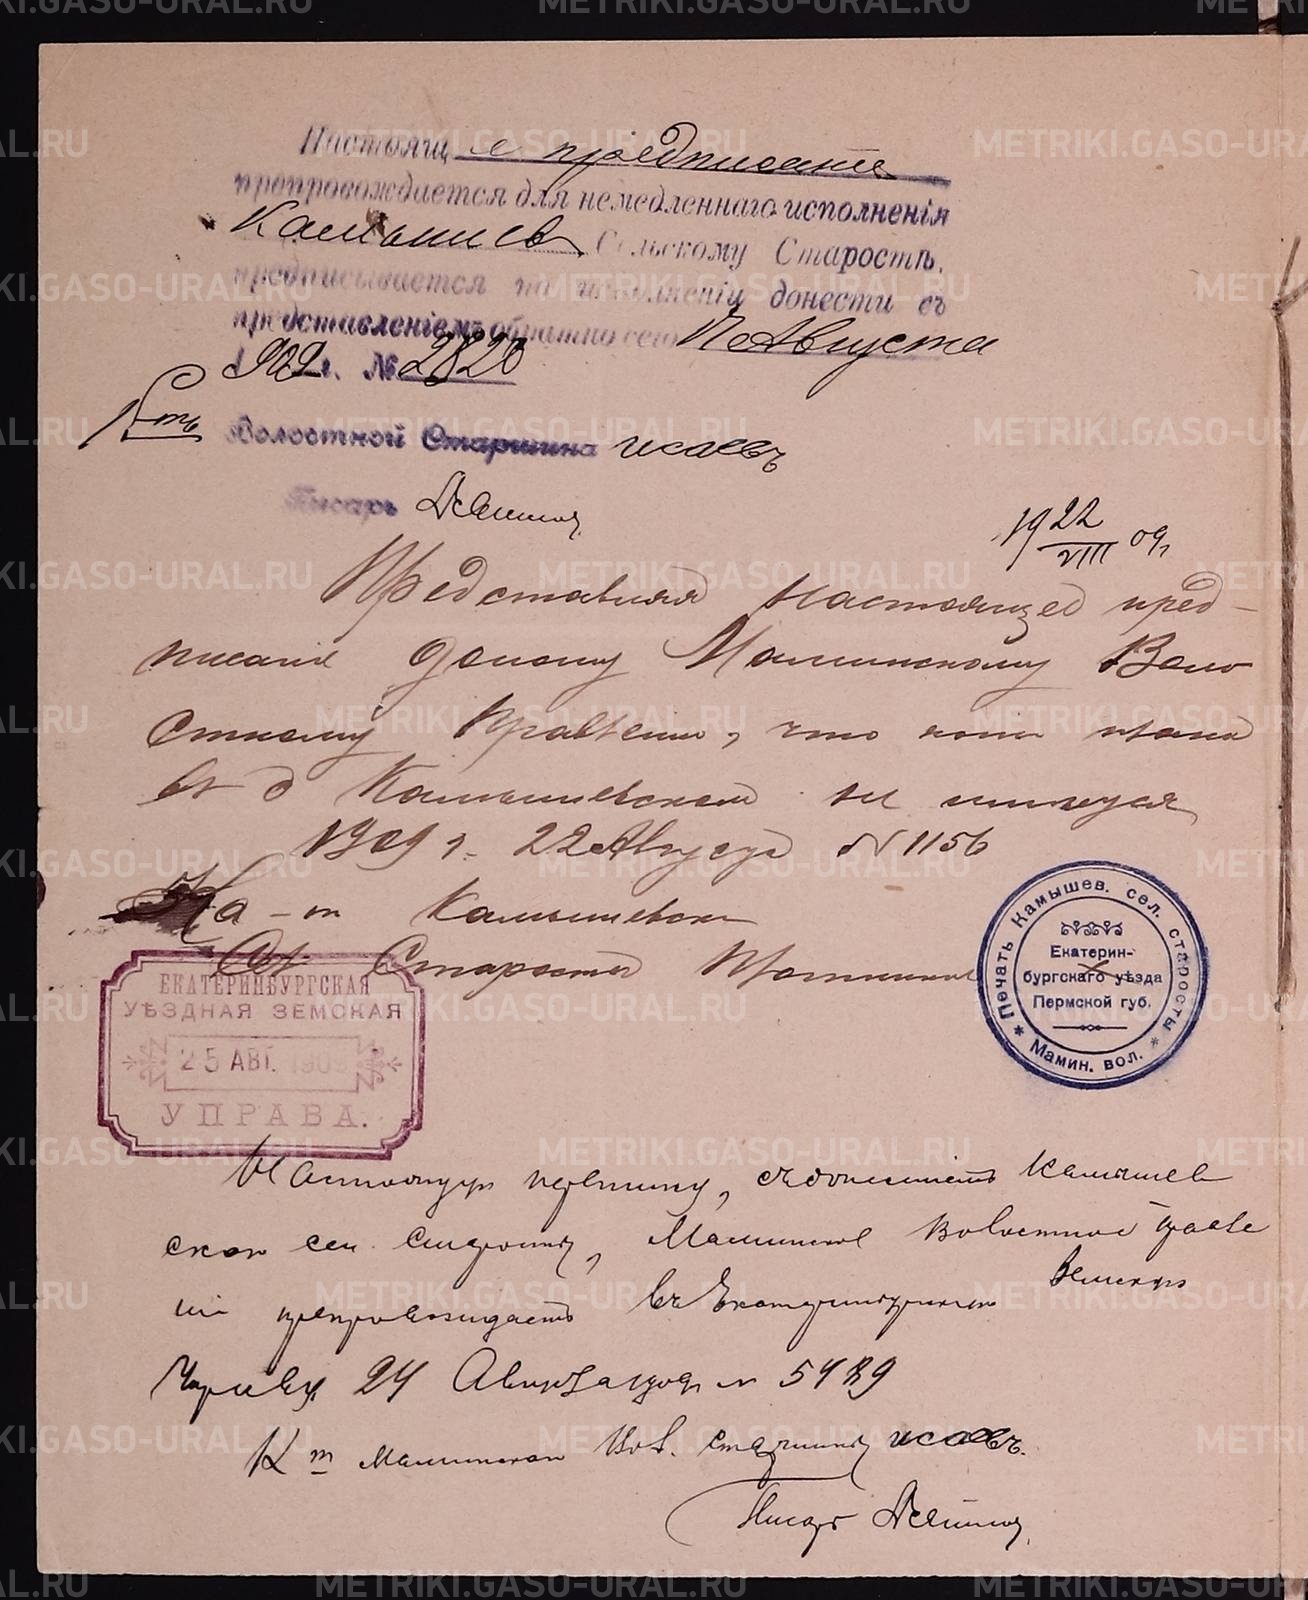 Настоящ е предписание
препровождается для немедленнаго исполненія
Камышев Сельскому Старостѣ,
предписывается по исполненіи донести съ
представленіемъ обратно сего 17 Августа
1909 г. № 2820
Волостной Старшина Исаевъ
Писарь
19 22/VIII 09 г.
Представляя настоящее пред-
писание оному Маминскому Воло
стному Правлению, что
в д Камышевской не имеется
1909 г. 22 Августа № 1156
Камышевский
Сел Староста
Печать Камышев. сел. старосты
* Мамин. вол. *
Екатерин-
бургскаго уѣзда
Пермской губ.
ЕКАТЕРИНБУРГСКАЯ
УѢЗДНАЯ ЗЕМСКАЯ
25 АВГ. 190
УПРАВА.
Настоящую переписку, съ донесениемъ Камышев
скаго сел. старосты, Маминское Волостное Правле
ніе препровождаетъ въ Екатеринбургскую Земскую
Управу 24 Августа № 5489
Маминский Вол. Старшина Исаевъ.
Писарь
METRIKI.GASO-URAL.RU